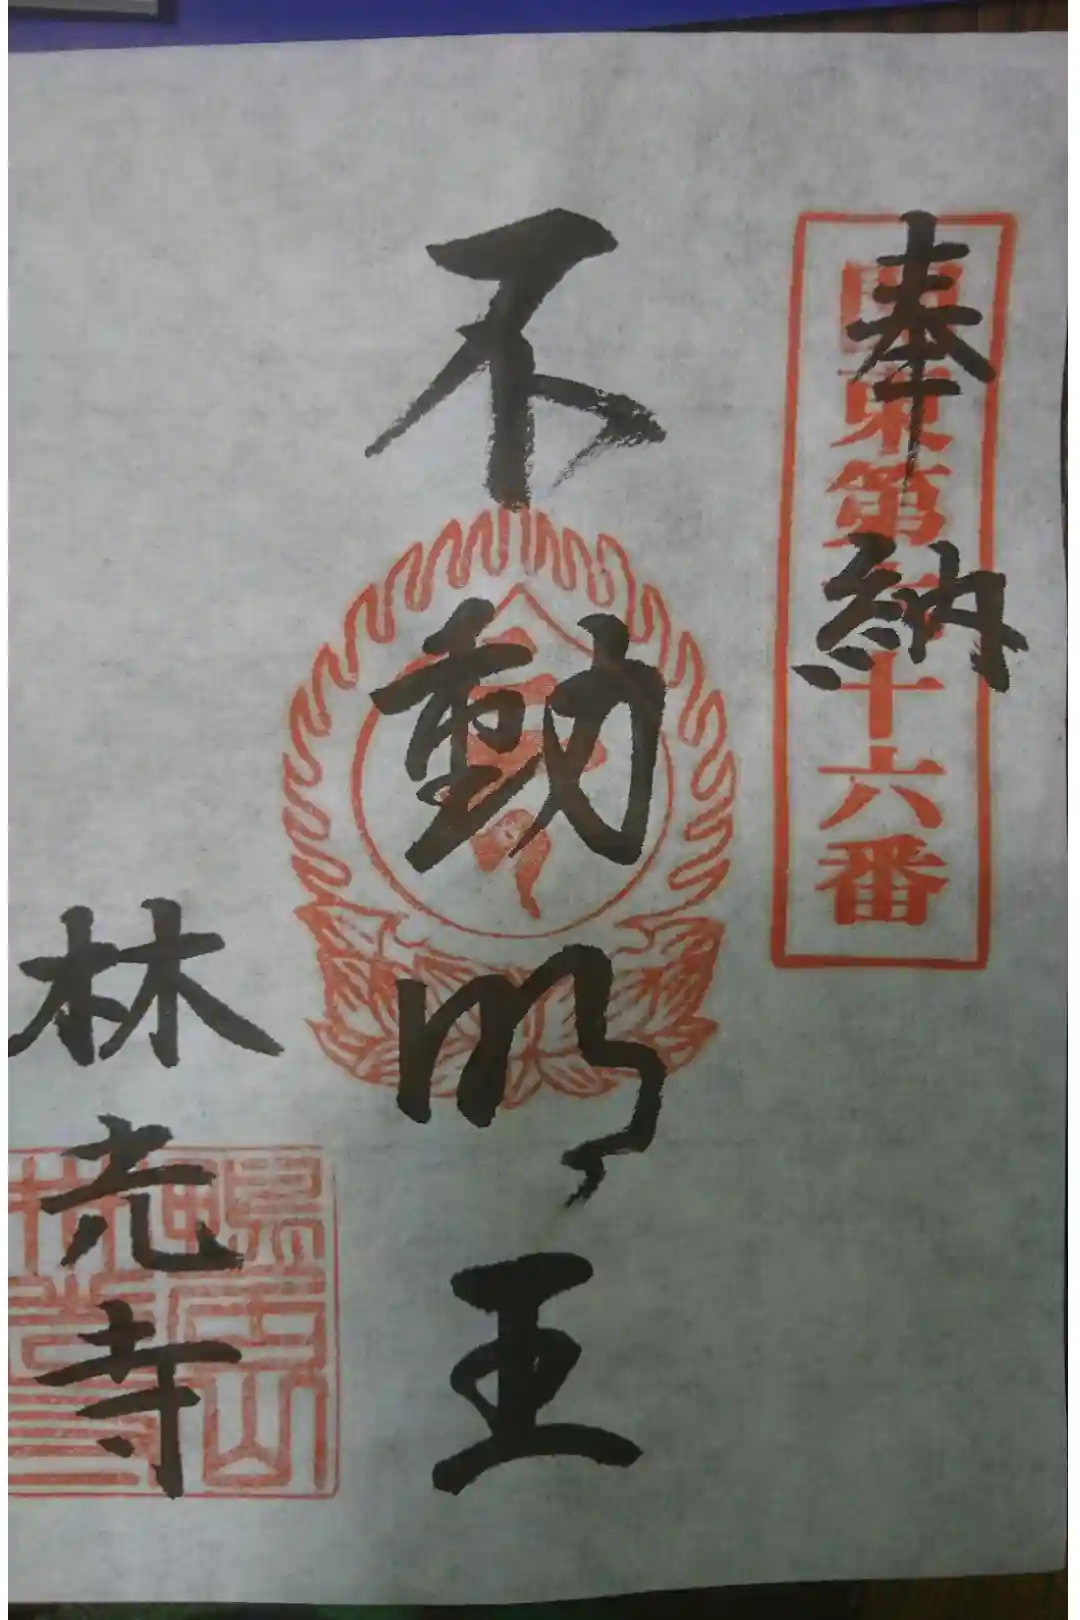 奉納
関東第十六番
不動明王
林光寺